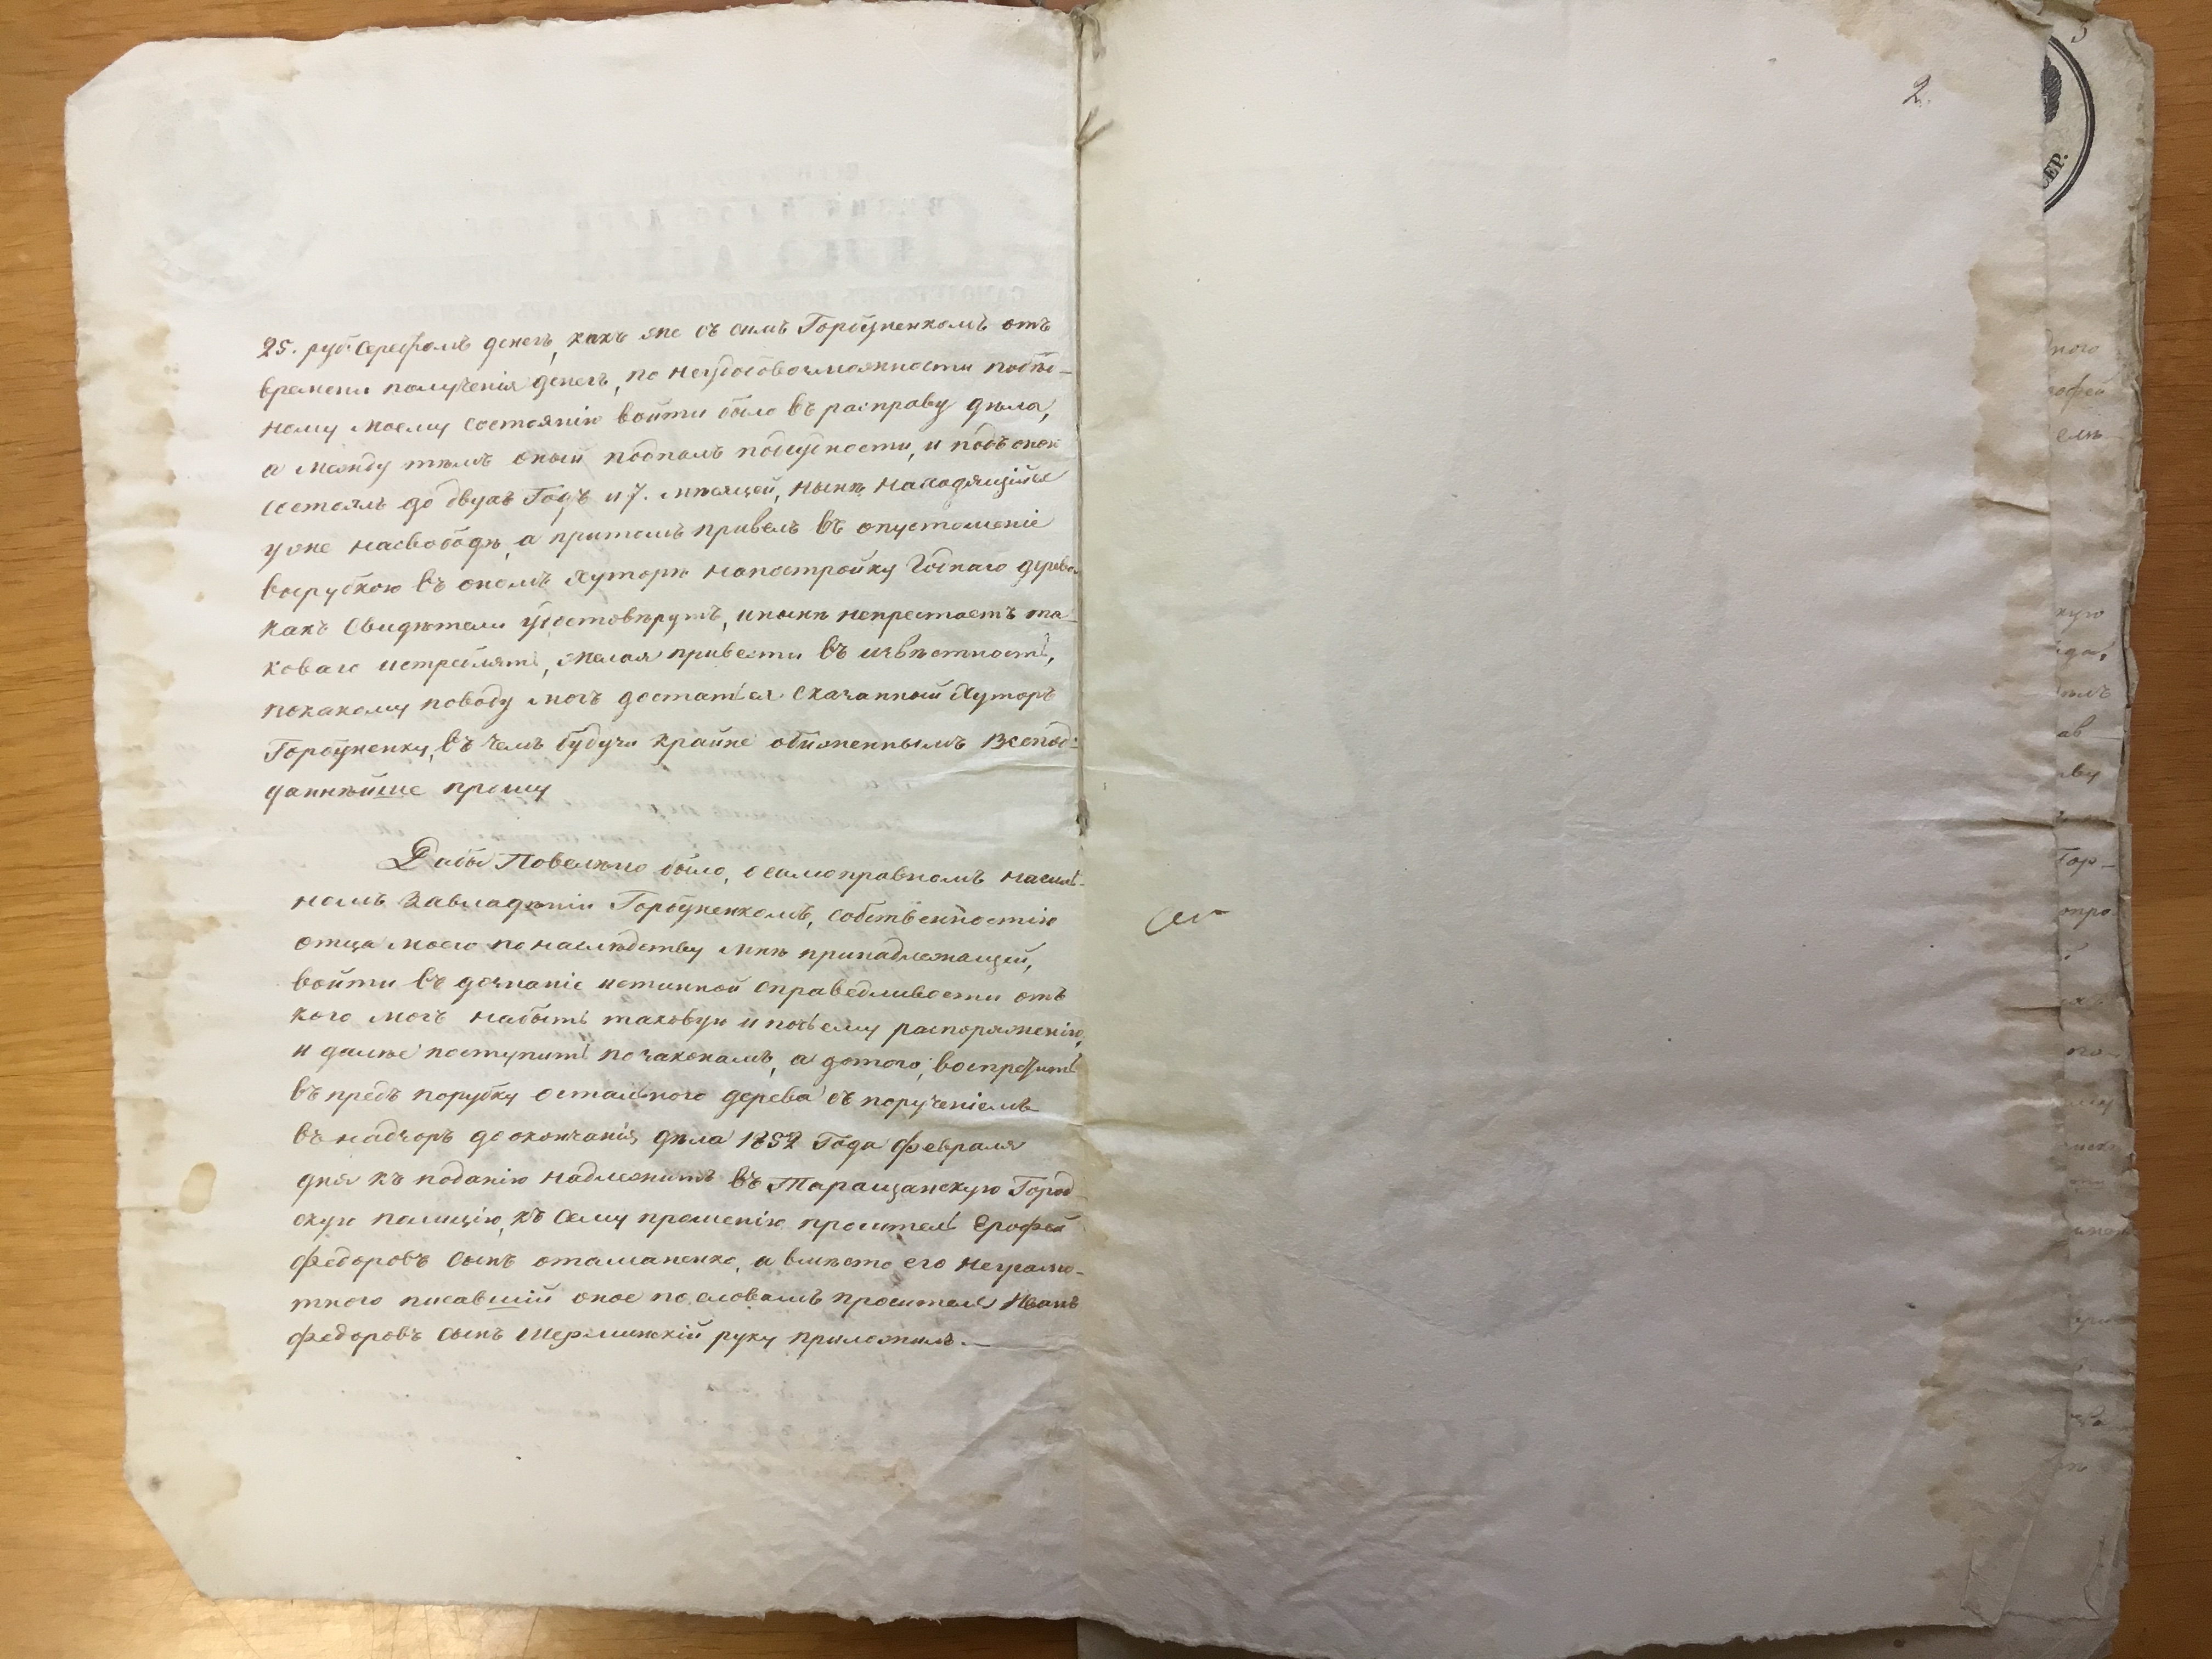 25. руб серебромъ денегъ, какъ же съ симъ Горбуненкомъ отъ
времени полученія денегъ, по неудобовозможности побѣд-
ному моему состоянію войти было въ расправу дѣла,
а между тѣмъ оный подпалъ подсудности, и подъ оною
состоялъ до двухъ Годъ и 7. мѣсяцей, нынѣ находящійся
уже насвободѣ, а притомъ привелъ въ опустошеніе
вырубкою въ ономъ Хуторѣ напостройку Годнаго дерева
какъ Свидѣтели удостовѣрутъ, инынѣ непрестаетъ та-
коваго истреблять, желая привести въ извѣстность,
покакому поводу могъ достаться Сказанный Хуторъ
Горбуненку, въ чемъ будучи крайне обиженнымъ Всепод-
даннѣйше прошу
Дабы Повелѣно было, о самоправномъ насиль-
номъ Завладѣніи Горбуненкомъ, собственностію
отца моего по наслѣдству мнѣ принадлежащей,
войти въ дознаніе истинной справедливости отъ
кого могъ набыть таковую и почьему распоряженію,
и далѣе поступить по законамъ, а дотого, воспретить
въ предъ порубку остального дерева съ порученіемъ
въ надзоръ до окончанія дѣла 1852 Года Февраля
дня къ поданію надлежитъ въ Таращанскую Город-
скую полицію, къ Сему прошенію проситель Ерофей
Федоровъ Сынъ отаманенко, а вмѣсто его неграмо-
тного писавшій оное по словамъ просителя Иванъ
Федоровъ Сынъ руку приложилъ.
2.
СЕР.
ного
рофей
кую
Гор-